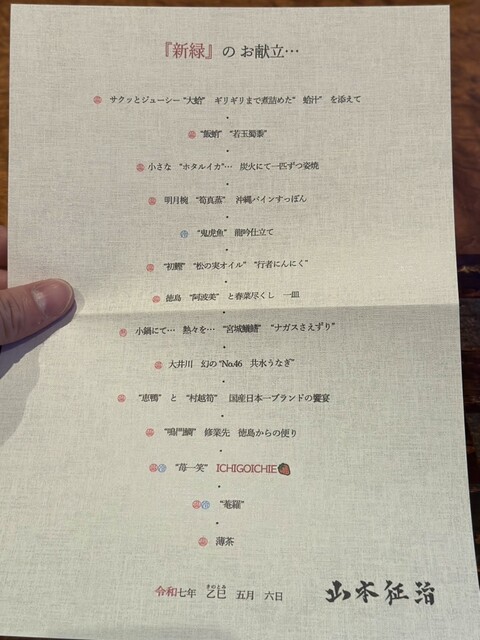 『新緑』の お献立…
温 サクッとジューシー “大蛤” ギリギリまで煮詰めた” 蛤汁” を添えて
温 “飯蛸” “若玉蜀黍”
温 小さな “ホタルイカ”… 炭火にて一匹ずつ姿焼
温 明月椀 “筍真蒸” 沖縄パインすっぽん
冷 “鬼虎魚” 龍吟仕立て
温 “初鰹” “松の実オイル” “行者にんにく”
温 徳島 “阿波美” と春菜尽くし 一皿
小鍋にて… 熱々を… “宮城 ” “ナガスさえずり”
温 大井川 幻の “No.46 共水うなぎ”
温 “恵鴨” と “村越筍” 国産日本一ブランドの饗宴
温 “鳴門鯛” 修業先 徳島からの便り
温冷 “苺一笑” ICHIGOICHIE
温冷 “菴羅”
温 薄茶
令和七年 乙巳 きのとみ 五月 六日 山本征治